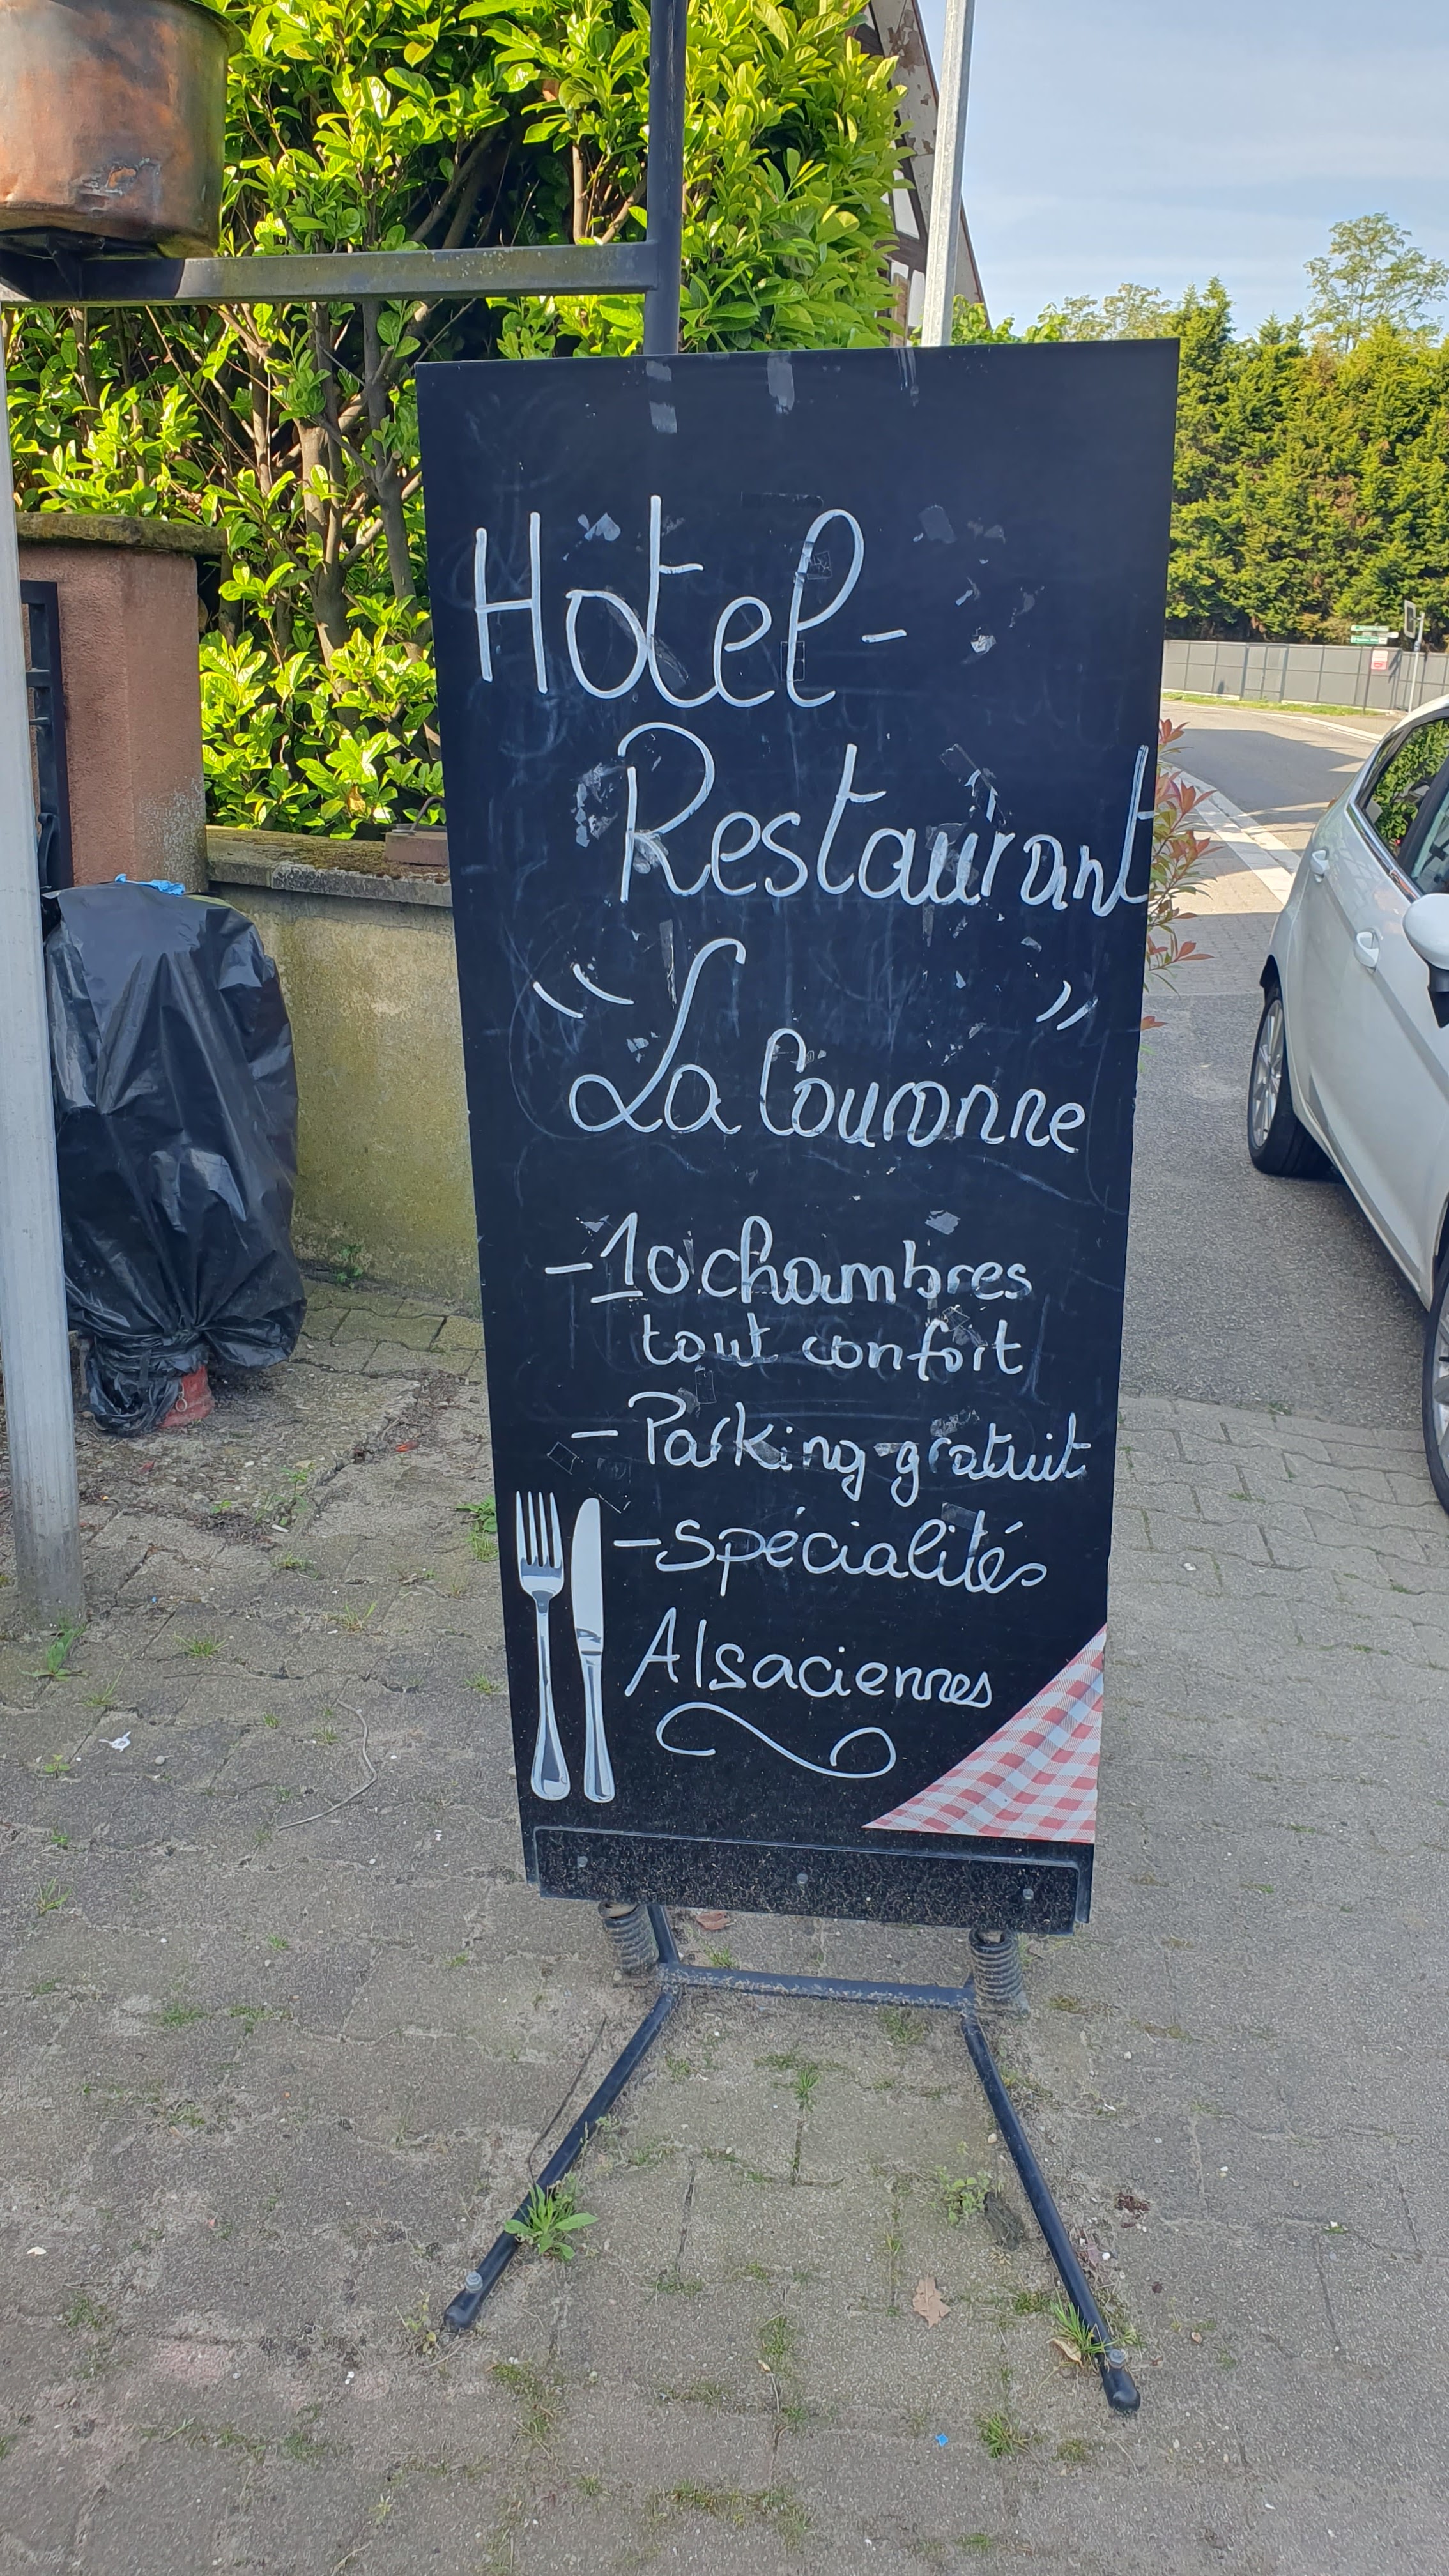 Hôtel-
Restaurant
"La Couronne"
- 10 chambres
tout confort
- Parking gratuit
- Spécialités
Alsaciennes